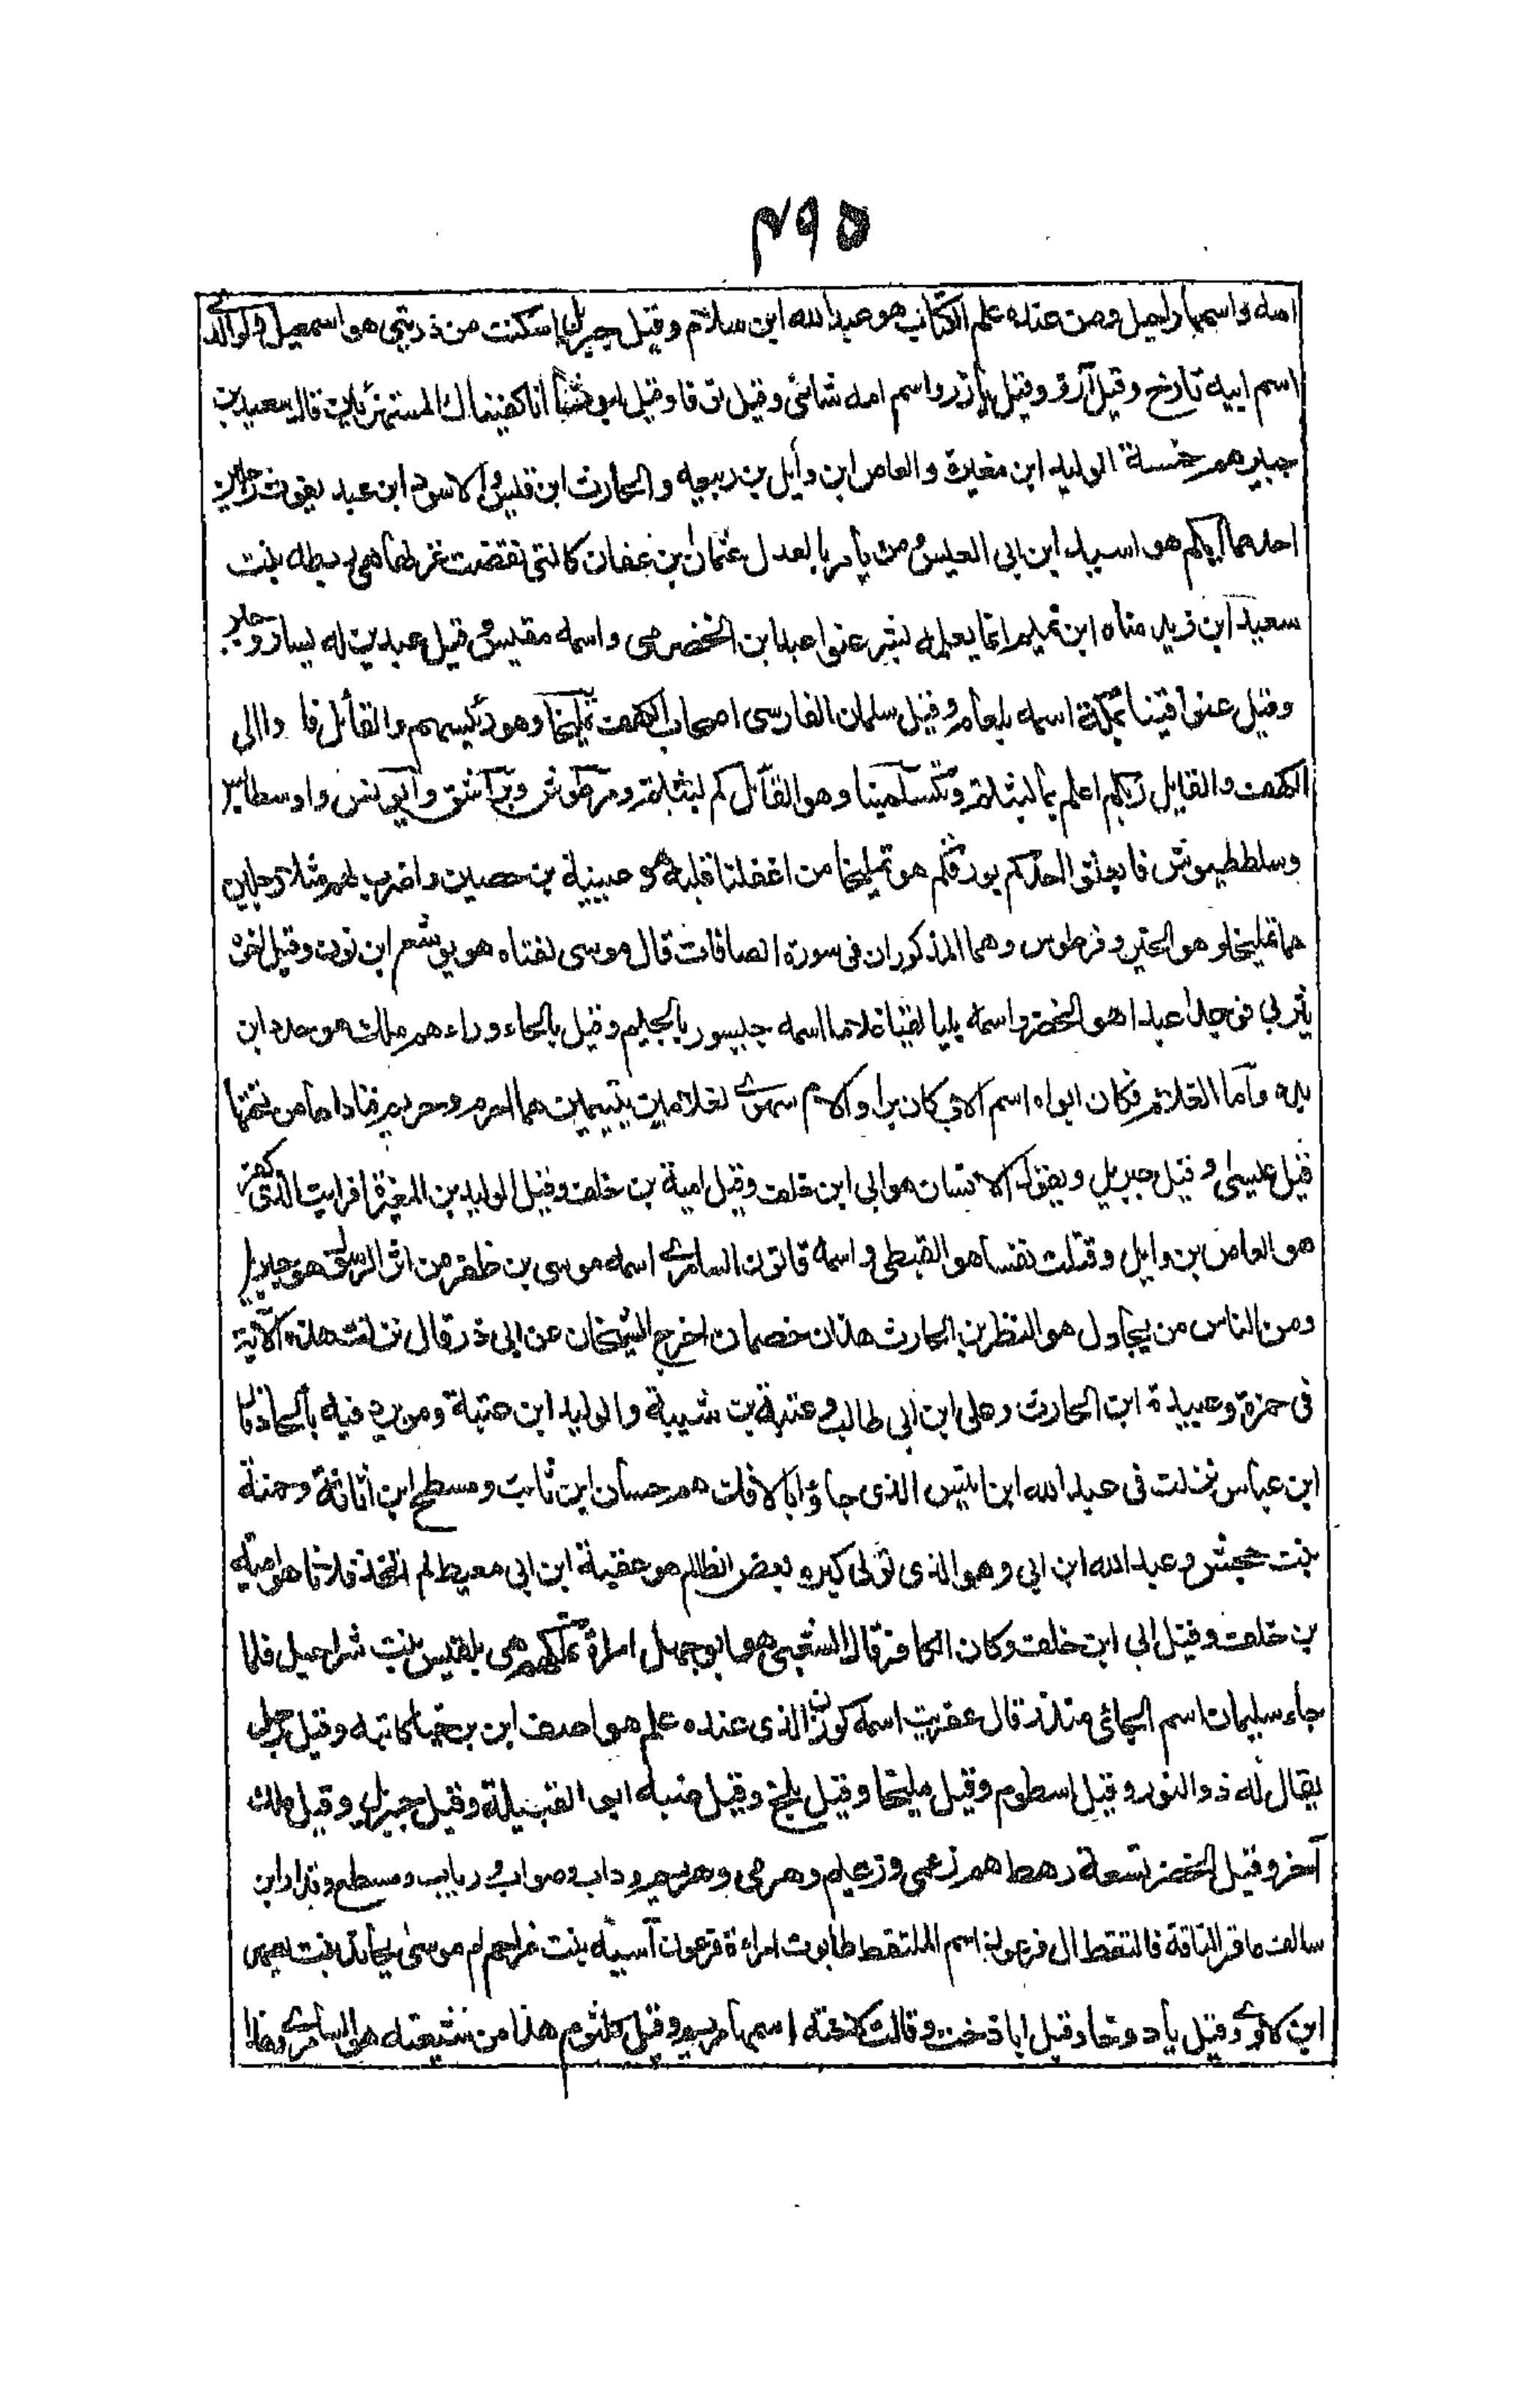 ٢٩٥
امه و اسمها راحيل ومن عنده علم الكتاب هو عبد الله ابن سلام وقيل جبريل اسكنت من ذريتي هو اسمعيل ولوالدي
اسم ابيه تارخ وقيل آزر وقيل يازر واسم امه شانى وقيل نوفا وقيل ليوثا انا كفيناك المستهزئين قال سعيد بن
جبير هم خمسة الوليد ابن مغيرة والعاص ابن وائل بن ربيعه والحارث ابن قيس والاسود ابن عبد يغوث رجلين
احدهما ابكم هو اسيد ابن ابى العيس ومن يأمر بالعدل عثمان بن عفان كالتى نقضت غزلها هى ريطه بنت
سعيد ابن زيد مناه ابن تميم انما يعلمه بشر عنوا عبد ابن الحضرمى واسمه مقيس وقيل عبدين له يسار وجبر
وقيل عنوا قينا بمكة اسمه بلعام وقيل سلمان الفارسى اصحاب الكهف تمليخا وهو رئيسهم والقائل فا واالى
الكهف والقايل ربكم اعلم بما لبثتم وتكسلمينا وهو القآئل كم لبثتم ومرطوش وبرآشق وآيونس واوسطانس
وسلططيوش فابعثوا احدكم بورقكم هو تمليخا من اغفلنا قلبه هو عيينة بن حصين واضرب لهم مثلا رجلين
هما تمليخا وهو الخير وفرطوس وهما المذكوران فى سورة الصافات قال موسى لفتاه هو يوشع ابن نون وقيل اخوه
يثربى فوجدا عبدا هو الخضر واسمه بليا لقيا غلاما اسمه جيسور بالجيم وقيل بالحاء وراءهم ملك هو هدد ابن
بدد وآما الغلام فكان ابواه اسم الاب كان برا والام سهوى لغلامين يتيمين هما اصرم وصريم فناداها من تحتها
قيل عيسى وقيل جبريل ويقول الانسان هو ابى ابن خلف وقيل امية بن خلف وقيل الوليد بن المغيرة افرايت الذى كفر
هو العاص بن وايل وقتلت نفسا هو القبطى واسمه قاتون السامرى اسمه موسى بن ظفر من اثر الرسول هو جبريل
ومن الناس من يجادل هو النظر بن الحارث هذان خصمان اخرج الشيخان عن ابى ذر قال نزلت هذه الآية
فى حمزة وعبيدة ابن الحارث وعلى ابن ابى طالب وعتبة بن شيبة والوليد ابن عتبة ومن يرد فيه بالحاد قال
ابن عباس نزلت فى عبد الله ابن انيس الذى جاؤا بالافك هم حسان ابن ثابت ومسطح ابن اثاثة وحمنة
بنت جحش وعبد الله ابن ابى وهو الذى تولى كبره يعض الظالم هو عقبة ابن ابى معيط لم اتخذ فلانا هو اميه
بن خلف وقيل ابى ابن خلف وكان الكافر قال الشعبى هو ابوجهل امراة تملكهم هى بلقيس بنت شراحيل فلما
جاء سليمان اسم الجائى منذر قال عفريت اسمه كوزن الذى عنده علم هو اصف ابن برخيا كاتبه وقيل رجل
يقال له ذو النور وقيل اسطوم وقيل مليخا وقيل بلخ وقيل ضبه ابى القبيلة وقيل جبريل وقيل ملك
آخر وقيل الخضر تسعة رهط هم زعمى وزعيم وهرمى وهريم وداب وصواب وريابب ومسطح وقدار ابن
سالف عاقر الناقة فالتقط ال فرعون اسم الملتقط طابوث امراءة فرعون آسية بنت مزاحم ام موسى يحانذ بنت يصهر
ابن لاوى وقيل يادوخا وقيل اباذخت وقالت لاخته اسمها مريم وقيل كلثوم هذا من شيعته هو السامرى وهذا